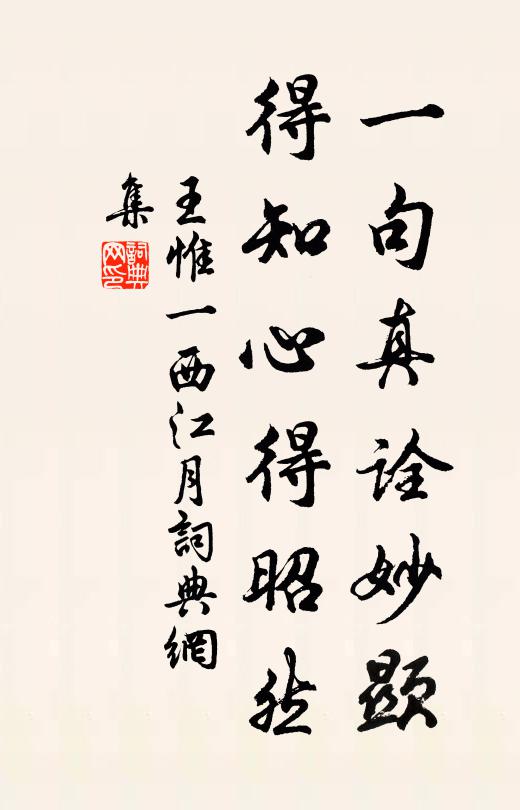 一句真詮妙顯
得知心得昭然
王惟一西江月詞典網
集
詞典
网印